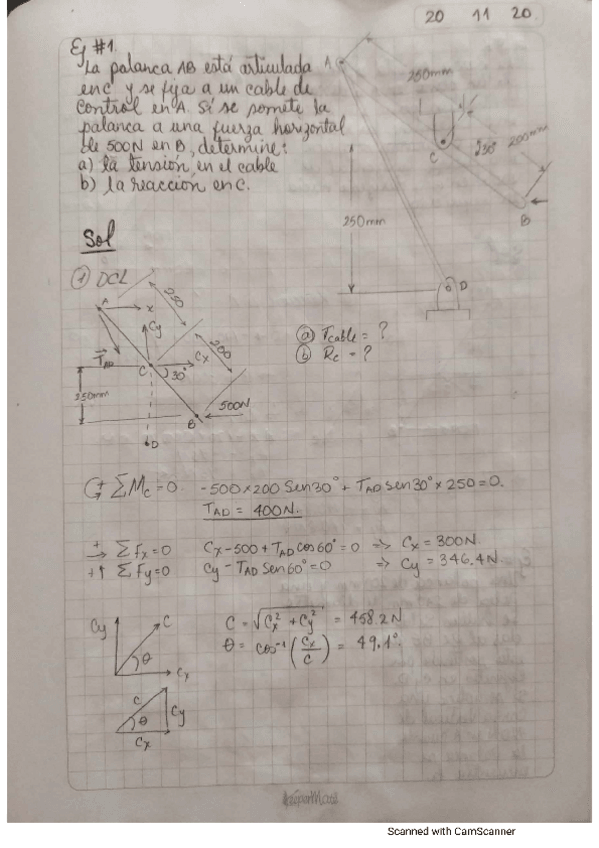 20 11 20
Ej #1.
La palanca AB está articulada
en C y se fija a un cable de
control en A. Si se somete la
palanca a una fuerza horizontal
de 500N en B, determine:
a) la tensión en el cable
b) la reacción en C.
A
250mm
C
30°
200mm
B
250mm
D
Sol
① DCL
A
x
250
Cy
Cx
200
T⃗AD
C
30°
250mm
500N
B
D
ⓐ Tcable = ?
ⓑ Rc = ?
∑Mc=0 -500×200 Sen30° + TAD sen30° × 250 = 0.
TAD = 400N.
+→ ∑Fx=0 Cx - 500 + TAD cos60° = 0 => Cx = 300N.
+↑ ∑Fy=0 Cy - TAD Sen60° = 0 => Cy = 346.4N.
Cy C θ Cx
C = √(Cx² + Cy²) = 458.2N
θ = cos⁻¹(Cx/C) = 49.1°.
C Cy θ Cx
Scanned with CamScanner